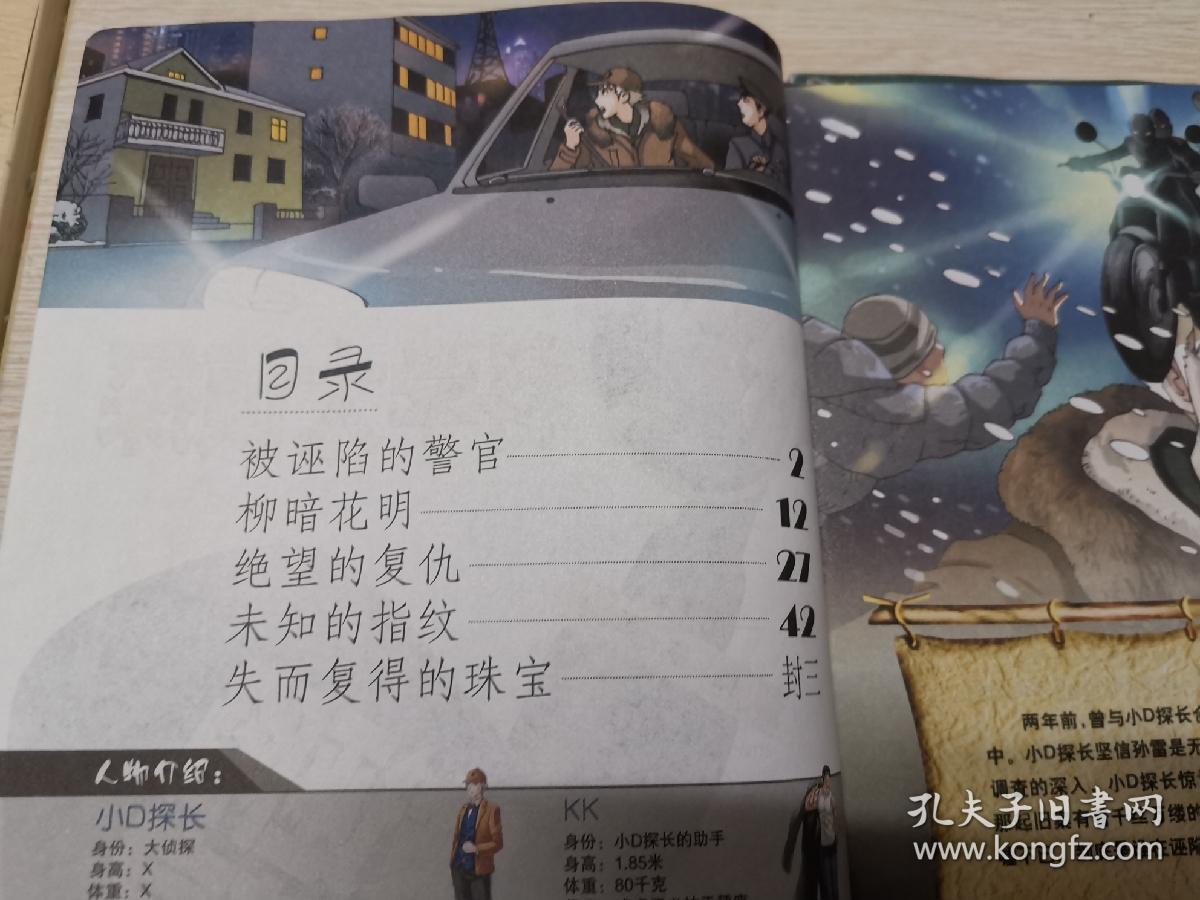 目录
被诬陷的警官 2
柳暗花明 12
绝望的复仇 27
未知的指纹 42
失而复得的珠宝 封三
人物介绍：
小D探长
身份：大侦探
身高：X
体重：X
KK
身份：小D探长的助手
身高：1.85米
体重：80千克
两年前，曾与小D探长
中。小D探长坚信孙雷是无
调查的深入，小D探长惊
那起旧案有着千丝万缕的
孔夫子旧書网
www.kongfz.com